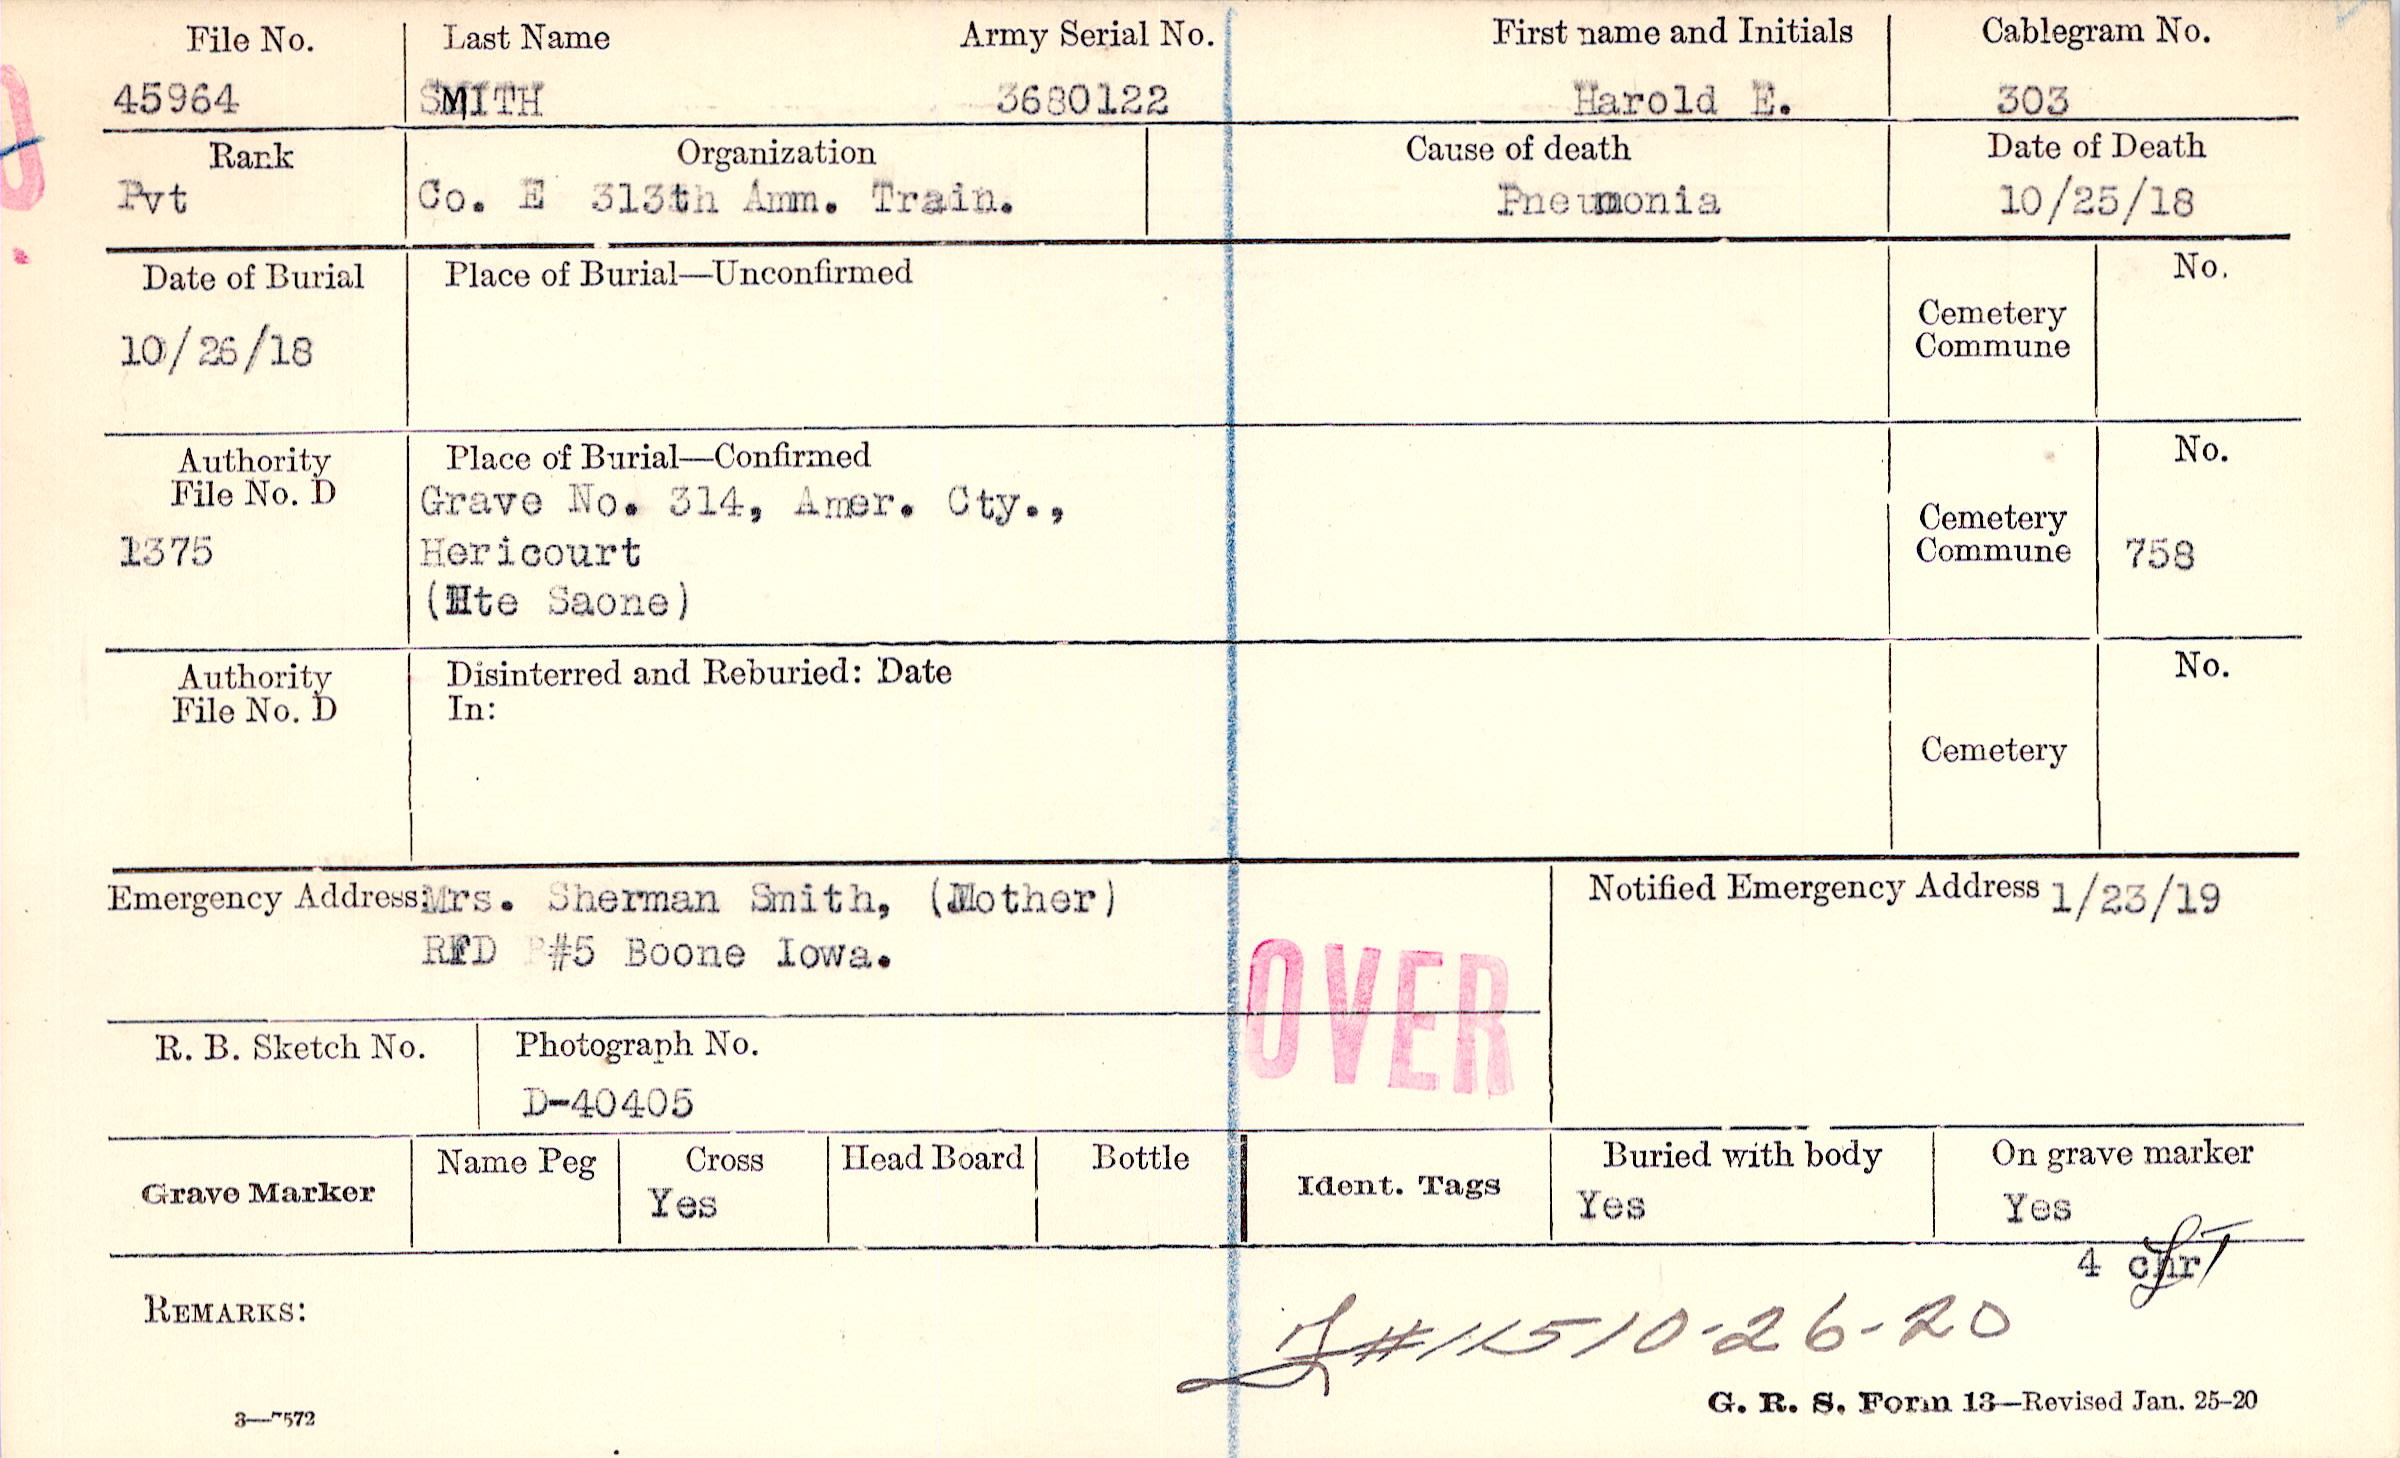 File No. Last Name Army Serial No. First name and Initials Cablegram No.
45964 SMITH 3680122 Harold E. 303
Rank Organization Cause of death Date of Death
Pvt Co. E 313th Amm. Train. Pneumonia 10/25/18
Date of Burial Place of Burial—Unconfirmed No.
10/26/18 Cemetery
Commune
Authority Place of Burial—Confirmed No.
File No. D Grave No. 314, Amer. Cty., Cemetery
1375 Hericourt Commune 758
(Hte Saone)
Authority Disinterred and Reburied: Date No.
File No. D In:
Cemetery
Emergency Address: Mrs. Sherman Smith, (Mother) Notified Emergency Address 1/23/19
RFD #5 Boone Iowa.
OVER
R. B. Sketch No. Photograph No.
D-40405
Grave Marker Name Peg Cross Head Board Bottle Ident. Tags Buried with body On grave marker
Yes Yes Yes
4 chr
REMARKS:
10-26-20
3—7572 G. R. S. Form 13—Revised Jan. 25-20